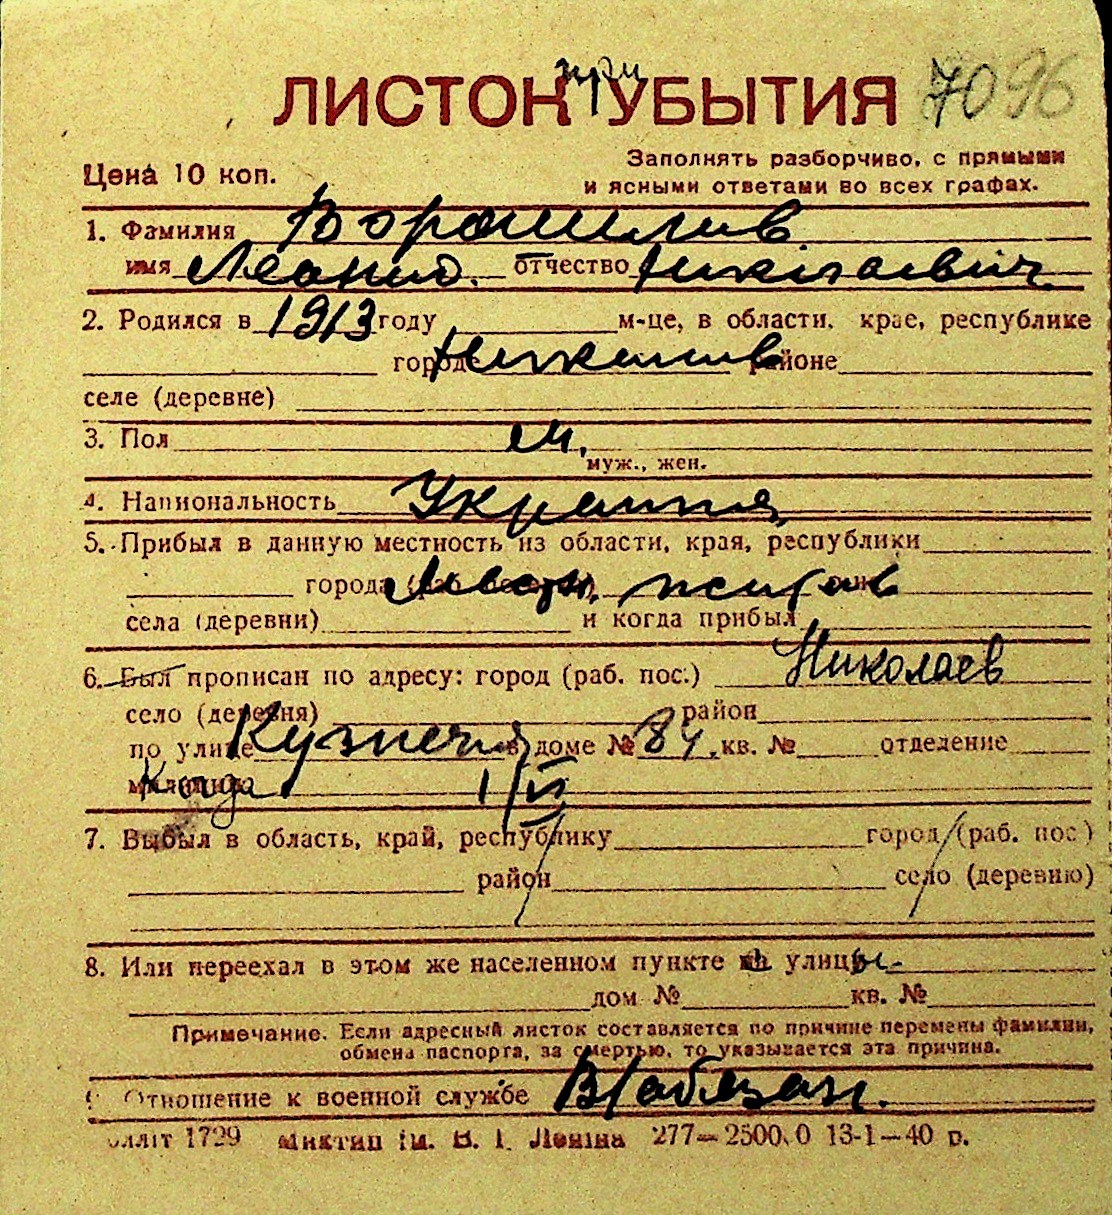 при
ЛИСТОК УБЫТИЯ 7096
Цена 10 коп.
Заполнять разборчиво, с прямыми
и ясными ответами во всех графах.
1. Фамилия Ворошилов
имя Леонид. отчество Николаевич
2. Родился в 1913 году м-це, в области, крае, республике
городе Николаев районе
селе (деревне)
3. Пол м.
муж., жен.
4. Национальность Украинец
5. Прибыл в данную местность из области, края, республики
города
села (деревни) и когда прибыл
6. Был прописан по адресу: город (раб. пос.) Николаев
село (деревня) район
по улице Кузнечная в доме № 84. кв. № отделение
милиции Когда 1/VI
7. Выбыл в область, край, республику город (раб. пос.)
район село (деревню)
8. Или переехал в этом же населенном пункте улицы
дом № кв. №
Примечание. Если адресный листок составляется по причине перемены фамилии,
обмена паспорта, за смертью, то указывается эта причина.
Отношение к военной службе В/обязан.
1729 ім. В. І. Леніна 277—2500.0 13-1—40 р.